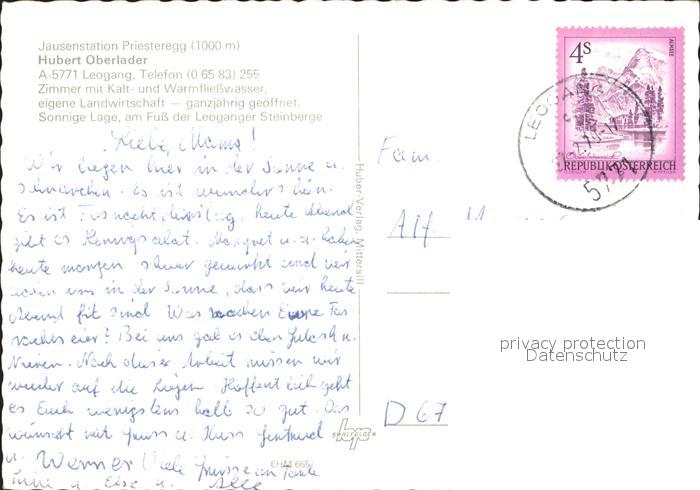 Jausenstation Priesteregg (1000 m)
Hubert Oberlader
A-5771 Leogang, Telefon (0 65 83) 255
Zimmer mit Kalt- und Warmfließwasser,
eigene Landwirtschaft — ganzjährig geöffnet.
Sonnige Lage, am Fuß der Leoganger Steinberge
Liebe Mama!
Wir liegen hier in der Sonne u.
schnarchen. Es ist wunderschön.
Es ist Fasnachtdienstag, heute Abend
gibt es Heringssalat. Margret u. a. haben
heute morgen schwer gewirkt und wir
in der Sonne, dass wir heute
Abend fit sind. Was machen Eure Fas
nachtseier? Bei uns gab es eben Gulasch u.
Nieren. Nach dieser Arbeit müssen wir
wieder auf die Liegen. Hoffentlich geht
es Euch wenigstens halb so gut. Das
wünscht mit Gruss u. Kuss Gertrud
u. Werner Viele Grüsse an Tante
u. Else u. Alle
Huber-Verlag, Mittersill
EHM 665
Fam.
Alf
D 67
4s
ALMSEE
REPUBLIK ÖSTERREICH
LEOGANG
5771
privacy protection
Datenschutz